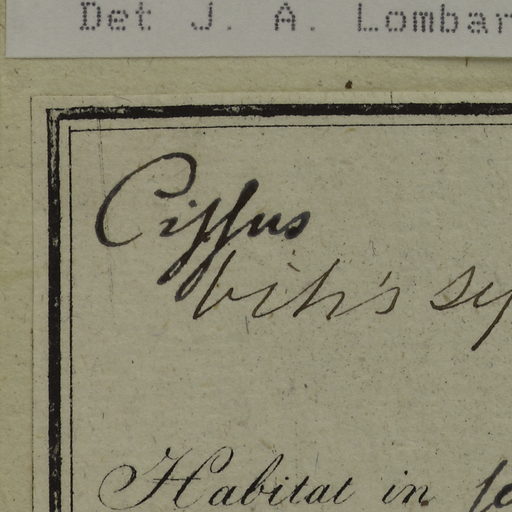 Det J. A. Lombar
Cissus
vitis
Habitat in